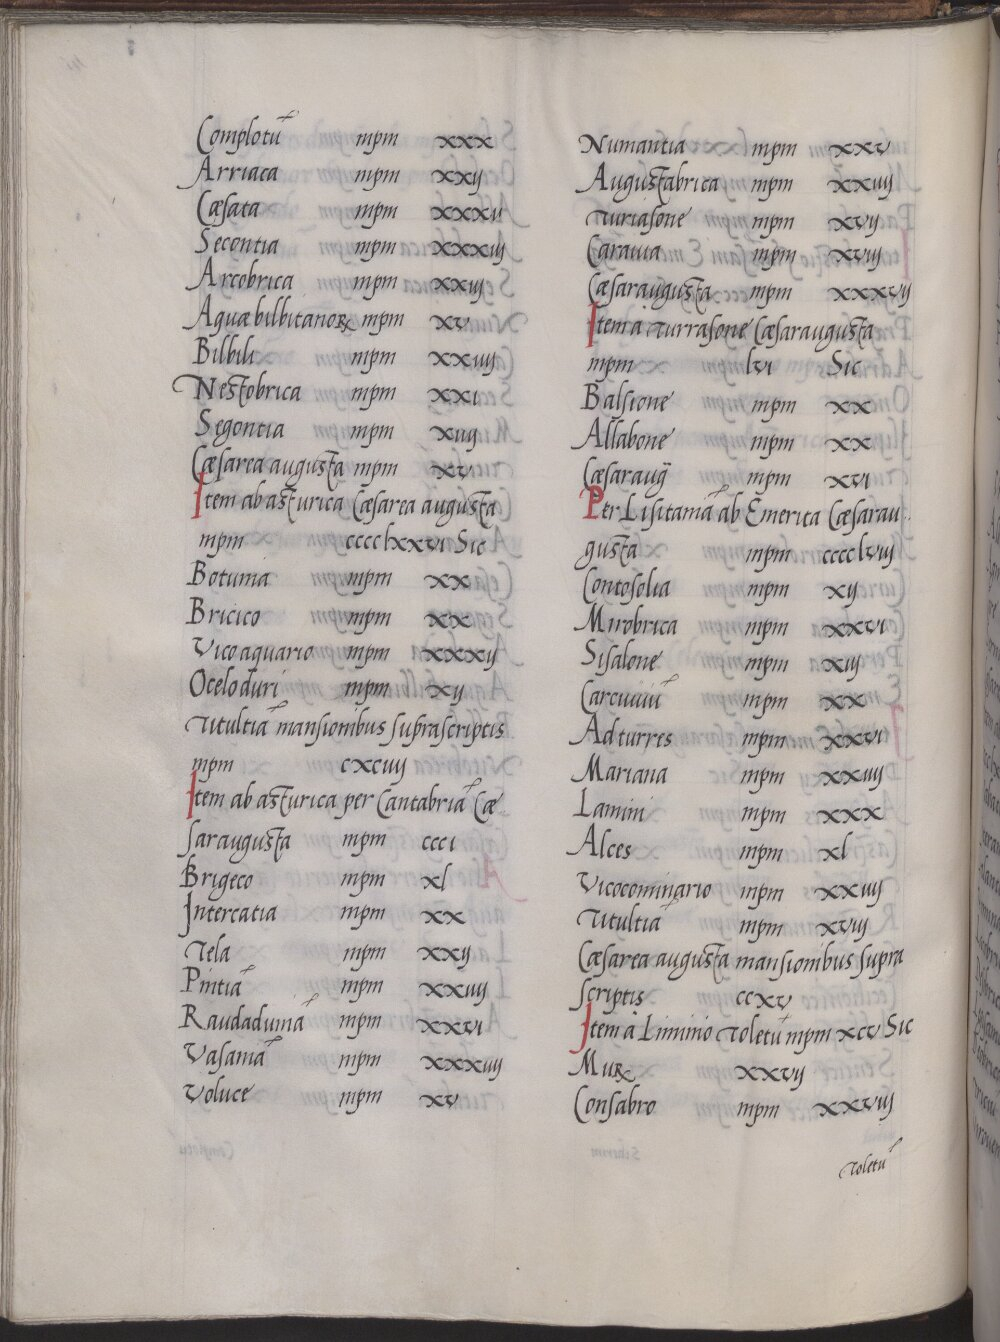 Complotū mpm xxx
Arriaca mpm xxij
Cæsata mpm xxxv
Secontia mpm xxxiij
Arcobrica mpm xxiij
Aquæ bilbitanoꝝ mpm xv
Bilbili mpm xxiiij
Nestobrica mpm xxi
Segontia mpm xiiij
Cæsarea augusta mpm xv
Item ab asturica Cæsarea augusta
mpm cccclxxvi Sic
Botunia mpm xx
Bricico mpm xx
Vico aquario mpm xxxij
Oceloduri mpm xij
Titultiā mansionibus suprascriptis
mpm cxciiij
Item ab asturica per Cantabriā Cæ
saraugusta mpm ccci
Brigeco mpm xl
Intercatia mpm xx
Tela mpm xxij
Pintiā mpm xxiiij
Raudaduniā mpm xxvi
Vasaniā mpm xxxiiij
Voluce mpm xv
Numantia mpm xxv
Augustabrica mpm xxiiij
Turiasone mpm xvij
Carauia mpm xviij
Cæsaraugusta mpm xxxvij
Item a Turrasone Cæsaraugusta
mpm lvi Sic
Balsione mpm xx
Allabone mpm xx
Cæsaraug̃ mpm xvi
Per Lisitaniā ab Emerita Cæsarau
gusta mpm cccclviij
Contosolia mpm xij
Mirobrica mpm xxvi
Sisalone mpm xiij
Carcuuiū mpm xx
Ad turres mpm xxvi
Mariana mpm xxiiij
Lamini mpm xxx
Alces mpm xl
Vicocominario mpm xxiiij
Titultiā mpm xviij
Cæsarea augusta mansionibus supra
scriptis ccxv
Item a Liminio Toletū mpm xcv Sic
Muꝝ xxvij
Consabro mpm xxviij
Toletū